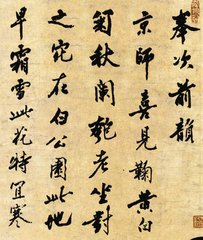 奉次前韻
京師喜見鞠黄白
菊秋闌老坐對
之宅在伯公園此地
早霜雪此花特宜寒